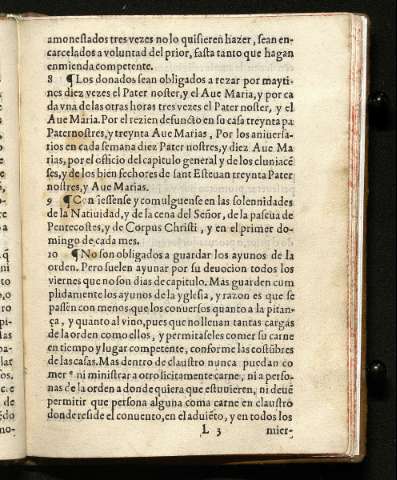 amonestados tres vezes no lo quisieren hazer, sean en-
carcelados a voluntad del prior, fasta tanto que hagan
enmienda competente.
8 ¶Los donados sean obligados a rezar por mayti-
nes diez vezes el Pater noster,y el Aue Maria,y por ca
da vna de las otras horas tres vezes el Pater noster, y el
Aue Maria.Por el rezien defuncto en su casa treynta pa
Paternostres,y treynta Aue Marias, Por los aniuersa-
rios en cada semana diez Pater nostres,y diez Aue Ma
rias, por el officio del capitulo general y de los cluniacē
ses,y de los bien fechores de sant Esteuan treynta Pater
nostres,y Aue Marias.
9 ¶Confiessense y comulguense en las solennidades
de la Natiuidad, y de la cena del Señor, de la pascua de
Pentecostes,y de Corpus Christi , y en el primer do-
mingo de cada mes.
10 ¶No son obligados a guardar los ayunos de la
orden. Pero suelen ayunar por su deuocion todos los
viernes que no son dias de capitulo. Mas guarden cum
plidamente los ayunos de la yglesia, y razon es que se
passen con menos que los conuersos quanto a la pitan-
ça , y quanto al vino,pues que no lleuan tantas cargas
de la orden como ellos , y permitaseles comer su carne
en tiempo y lugar competente, conforme las costūbres
de las casas.Mas dentro de claustro nunca puedan co
mer ni ministrar a otro licitamente carne, ni a perso-
nas de la orden a donde quiera que estuuieren, ni deuē
permitir que persona alguna coma carne en claustro
donde reside el conuento, en el aduiēto, y en todos los
L 3 mier-